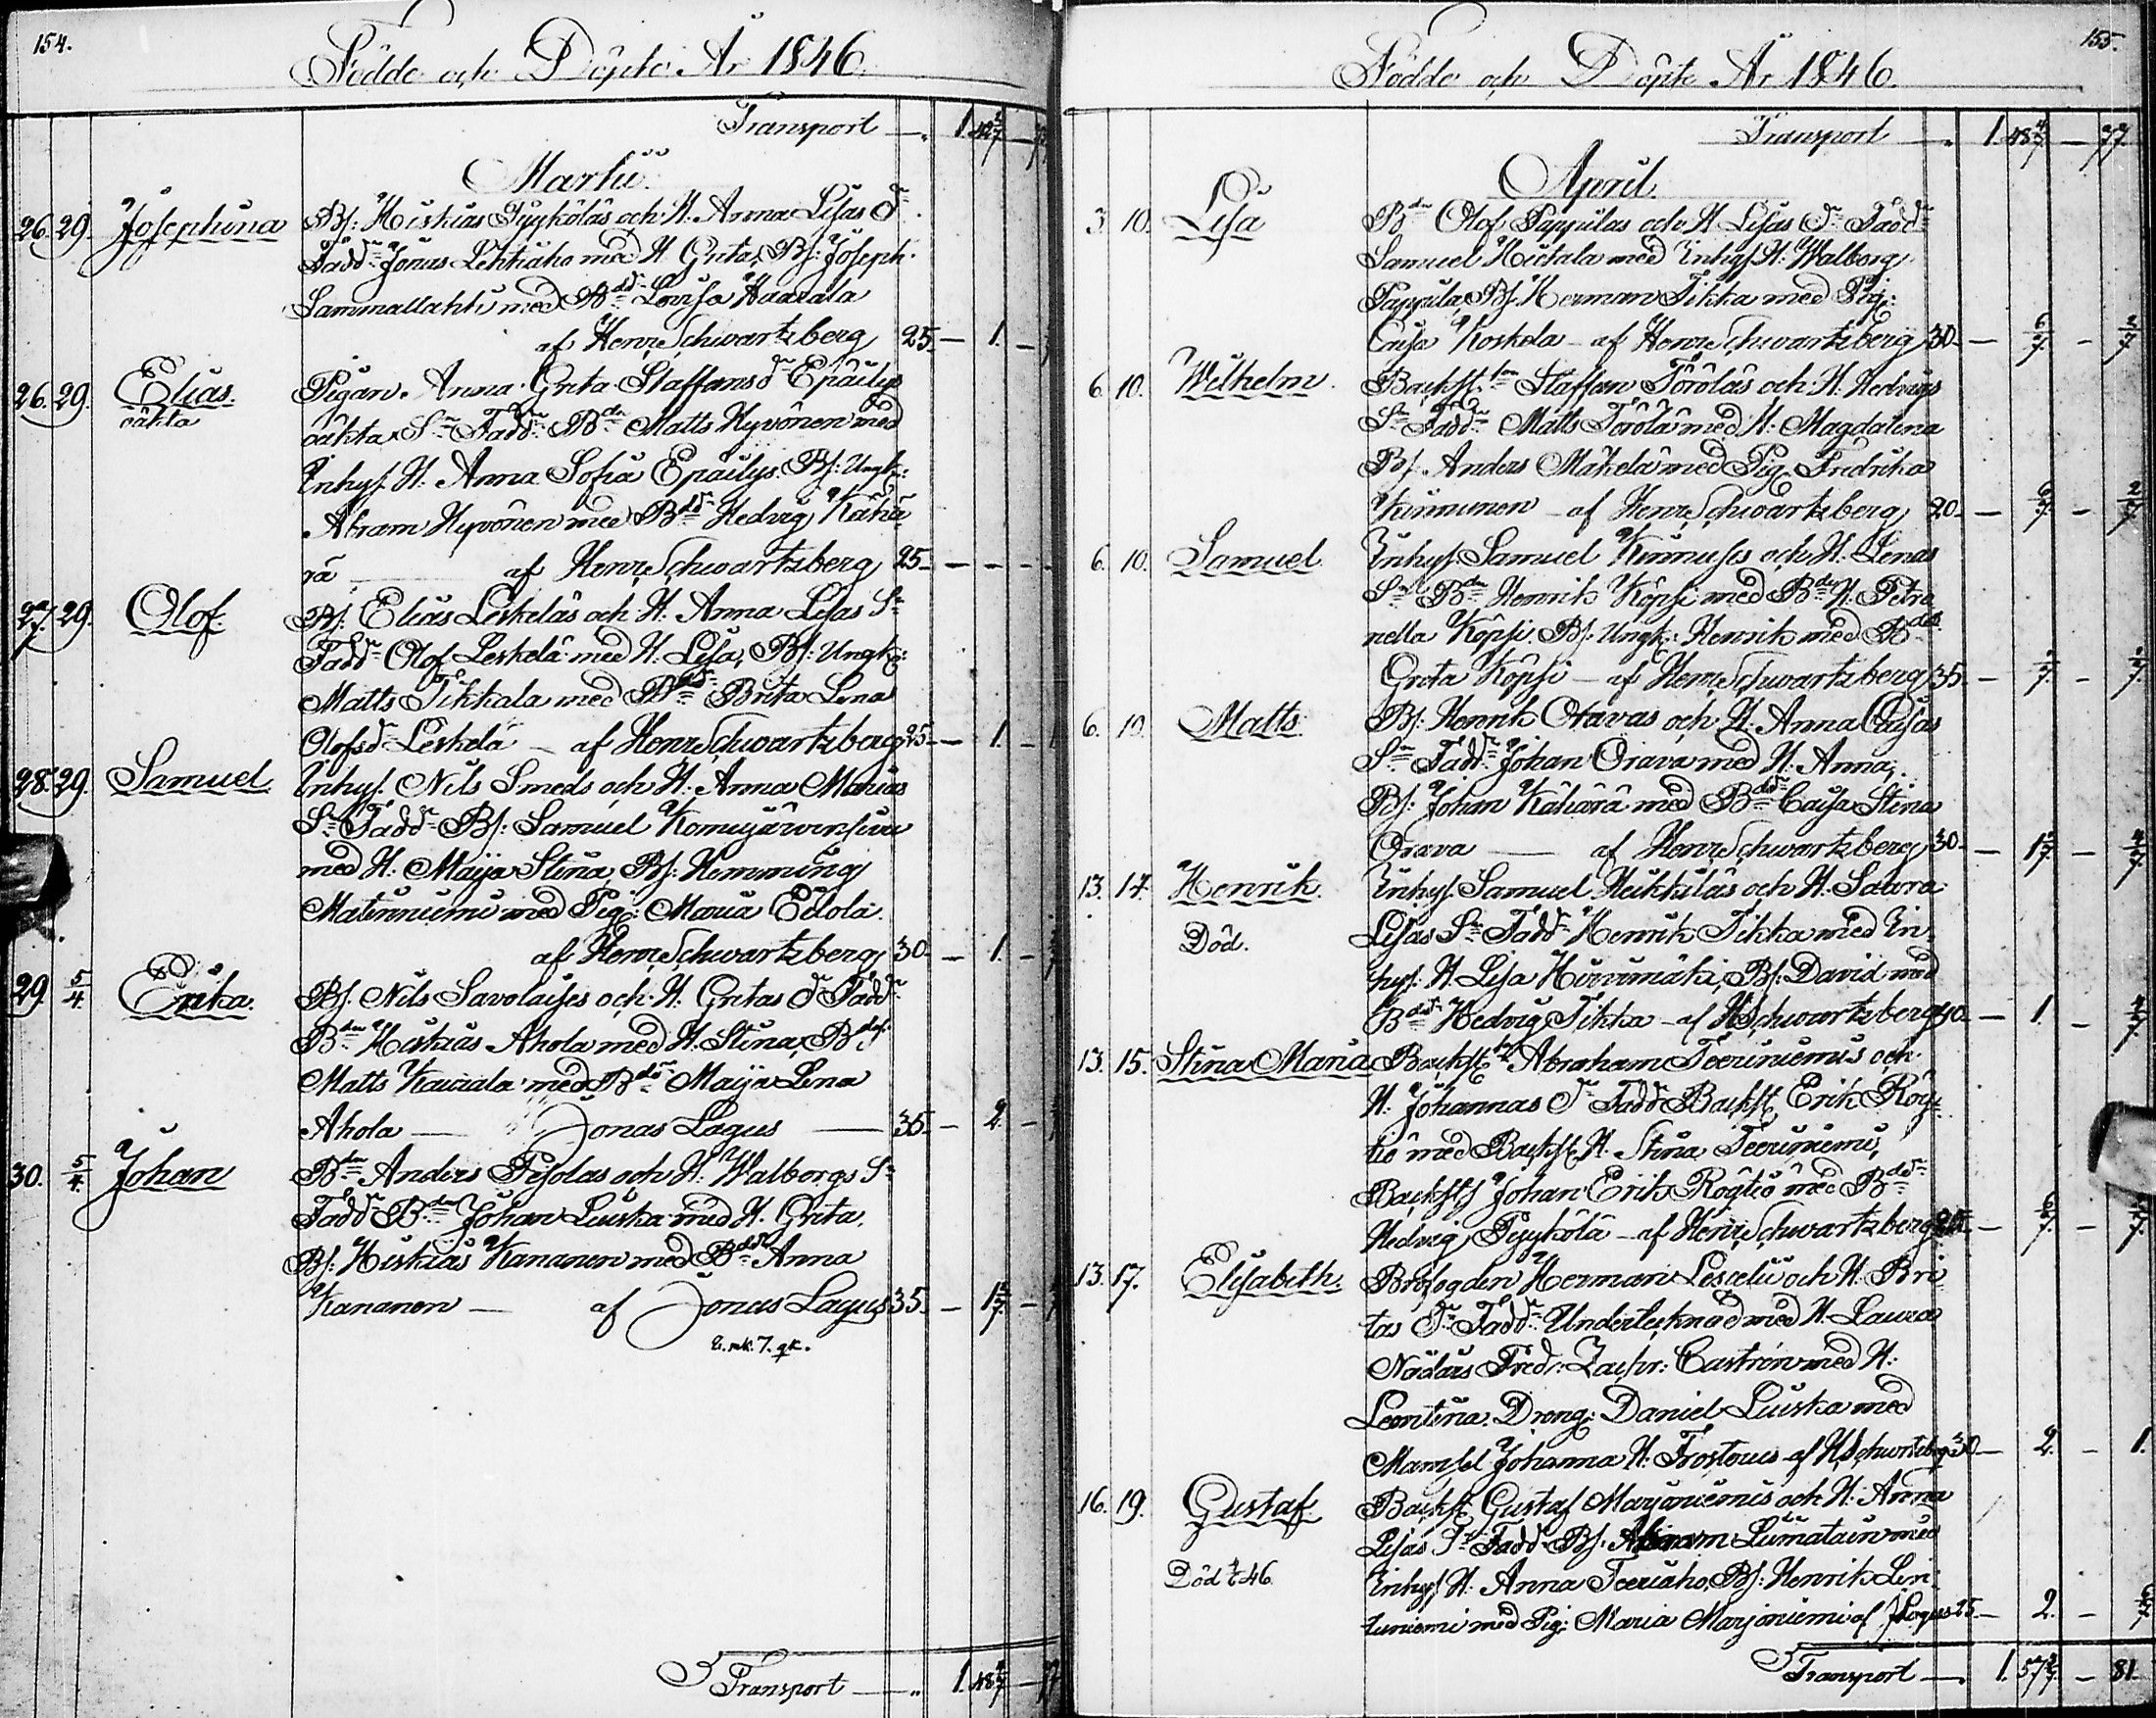 154.
Födde och Döpte År 1846.
Transport — 1.
Martii
26. 29. Josephina Bs: Hiskias Pyyköläs och H. Anna Lisas Dr
Fadd: Jonas Lehtiaho med H. Greta, Bs: Joseph
Sammallahti med Bdr Lovisa Haarala
af Henr Schwartzberg 25. — 1. —
26. 29. Elias. Pigan Anna Greta Staffansdr Epäilys
oäkta oäkta Sn Fadd: Bdn Matts Hyvönen med
Inhys H. Anna Sofia Epäilys. Bs: Ungk:
Abram Hyvönen med Bdr Hedvig Kähä
rä — af Henr Schwartzberg 25. — — —
27. 29. Olof. Bs: Elias Leskeläs och H. Anna Lisas Sn
Fadd: Olof Leskelä med H. Lisa, Bs: Ungk:
Matts Tikkala med Bdr Brita Lena
Olofsdr Leskelä — af Henr Schwartzberg 25. — 1. —
28. 29. Samuel Inhys. Nils Smeds och H. Anna Marias
Sn Fadd: Bs: Samuel
med H. Maija Stina, Bs: Hemming
Matinniemi med Pig: Maria Eilola.
af Henr Schwartzberg 30. — 1. —
29. 5/4 Erika. Bs. Nils Savolaises och H. Gretas Dr Fadd:
Bdn Hiskias Ahola med H. Stina, Bds:
Matts Kauzala med Bdr Maija Lena
Ahola — Jonas Lagus — 35. — 2. —
30. 5/4. Johan Bdn Anders Pesolas och H. Walborgs Sn
Fadd: Bdn Johan Luiska med H. Greta.
Bs: Hiskias Kananen med Bdr Anna
Kananen — af Jonas Lagus 35. — 1
7. gk.
Transport — 1. 48
155.
Födde och Döpte År 1846.
Transport — 1. 48 4/7 — 77
April.
3. 10. Lisa Bdn Olof Pappilas och H Lisas Dr Fadd:
Samuel Hietala med Inhys H. Walborg
Pappila, Bs. Herman Tikka med Pig:
Caisa Koskela — af Henr Schwartzberg 30. — 6/7. — 2/7
6. 10. Wilhelm. Backst. Staffan Töröläs och H. Hedvigs
Sn Fadd: Matts Törölä med H. Magdalena
Bs. Anders Mäkelä med Pig. Fredrika
Kinnunen — af Henr Schwartzberg 20. — 6/7. — 2/7
6. 10. Samuel Inhys. Samuel Kinnuses och H. Lenas
Sn Bdn Henrik Köpsi med Bdn H. Petro
nella Köpsi. Bs. Ungk: Henrik med Bdr
Greta Köpsi — af Henr Schwartzberg 35. —
6. 10. Matts. Bs. Henrik Oravas och H. Anna Caisas
Sn Fadd: Johan Orava med H. Anna,
Bs: Johan Kähärä med Bdr Caisa Stina
Orava — af Henr Schwartzberg 30. — 1 — 4/7
13. 14. Henrik. Inhys. Samuel Heikkiläs och H. Saara
Död. Lisas Sn Fadd: Henrik Tikka med In
hys. H. Lisa Hirvimäki, Bs. David med
Bdr Hedvig Tikka — af HSchwartzberg 40. — 1. — 4/7
13. 15. Stina Maria Backst. Abraham Teeriniemis och
H. Johannas Dr Fadd: Backst. Erik Röy
tiö med Backst. H. Stina Teeriniemi,
Backsts Johan Erik Röytiö med Bdr
Hedvig Pyykölä — af Henr Schwartzberg — 6/7. —
13. 17. Elisabeth. Brofogden Herman Leseelii och H. Bri
tas Dr Fadd: Undertecknad med H. Laura
Fredr: Zachr: Castrén med H.
Leontina. Dreng: Daniel Luiska med
Mamsel Johanna H. Frosterus af HSchwartzberg 30 — 2. — 1.
16. 19. Gustaf. Backst. Gustaf Marjoniemis och H. Anna
Lisas Sn Fadd: Bs. Abram Liimatain med
Död 46. Inhys H. Anna Teeriaho, Bs: Henrik Lin
tuniemi med Pig: Maria Marjoniemi af JLagus 25 — 2. — 6/7
Transport — 1. 57 — 81.